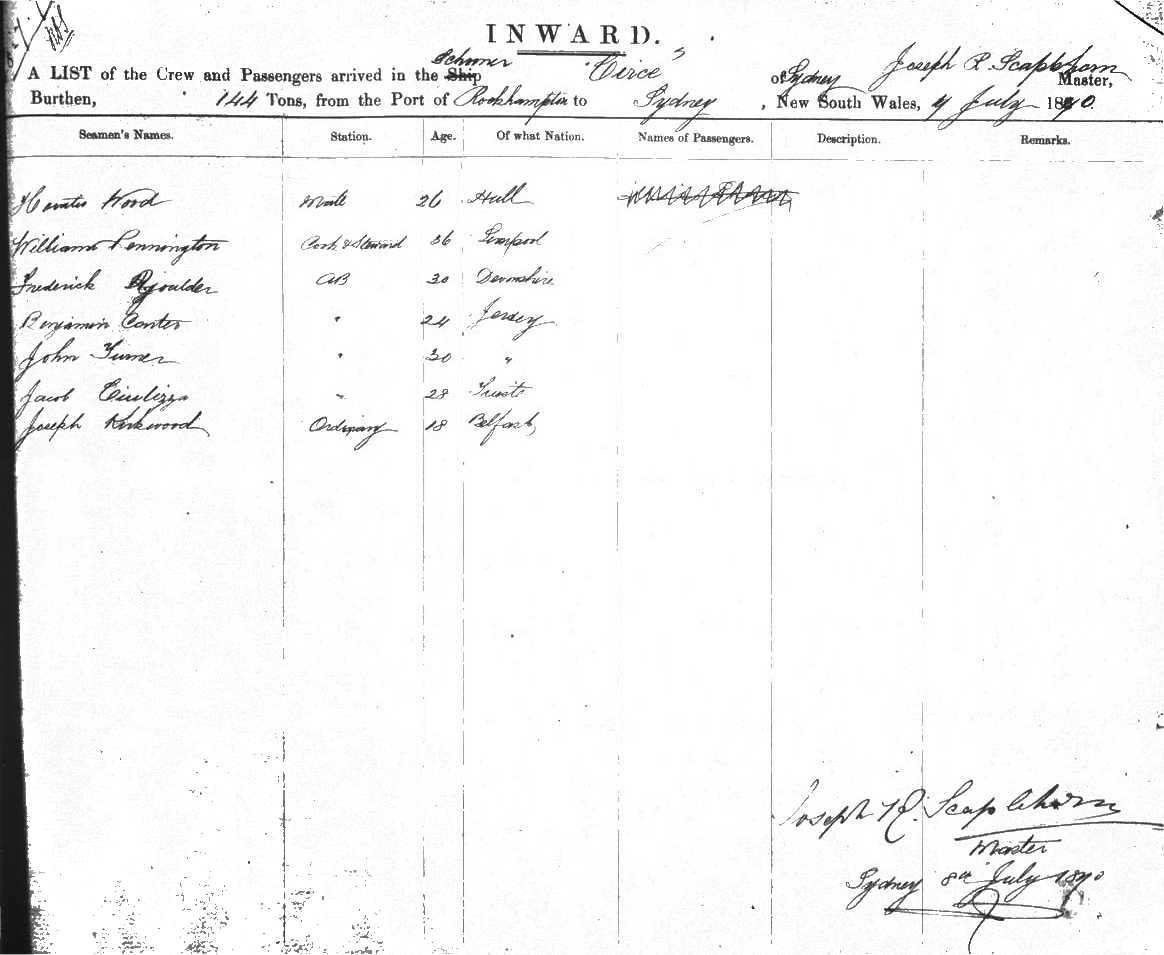 INWARD.
A LIST of the Crew and Passengers arrived in the Ship Schooner "Circe" of Sydney Joseph R. Scaplehorn Master,
Burthen, 144 Tons, from the Port of Rockhampton to Sydney, New South Wales, July 1870.
Seamen's Names. Station. Age. Of what Nation. Names of Passengers. Description. Remarks.
Horatio Wood Mate 26 Hull
William Pennington Cook & Steward 36 Liverpool
Frederick 30 AB Devonshire
Benjamin " 24 Jersey
John Turner " 30 "
Jacob " 28 Trieste
Joseph Kirkwood Ordinary 18 Belfast
Joseph R. Scaplehorn
Master
Sydney 8th July 1870